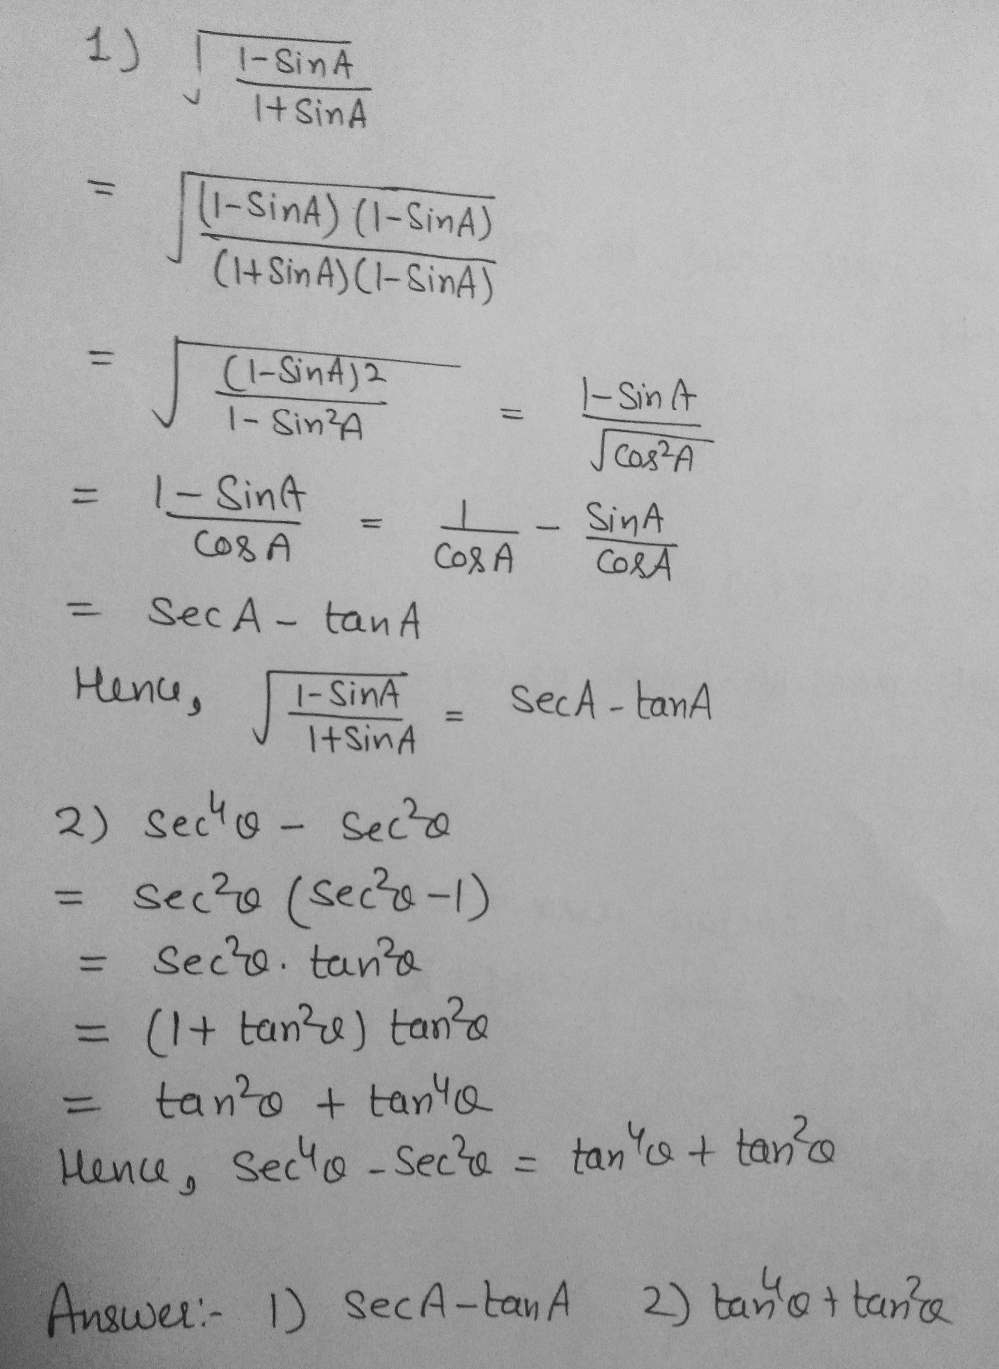 1) √((1-SinA)/(1+SinA))
= √(((1-SinA)(1-SinA))/((1+SinA)(1-SinA)))
= √((1-SinA)2/(1-Sin²A)) = (1-SinA)/√(Cos²A)
= (1-SinA)/(CosA) = 1/(CosA) - (SinA)/(CosA)
= SecA - tanA
Hence, √((1-SinA)/(1+SinA)) = SecA - tanA
2) Sec⁴θ - Sec²θ
= Sec²θ (Sec²θ-1)
= Sec²θ. tan²θ
= (1+ tan²θ) tan²θ
= tan²θ + tan⁴θ
Hence, Sec⁴θ - Sec²θ = tan⁴θ + tan²θ
Answer:- 1) SecA-tanA 2) tan⁴θ + tan²θ